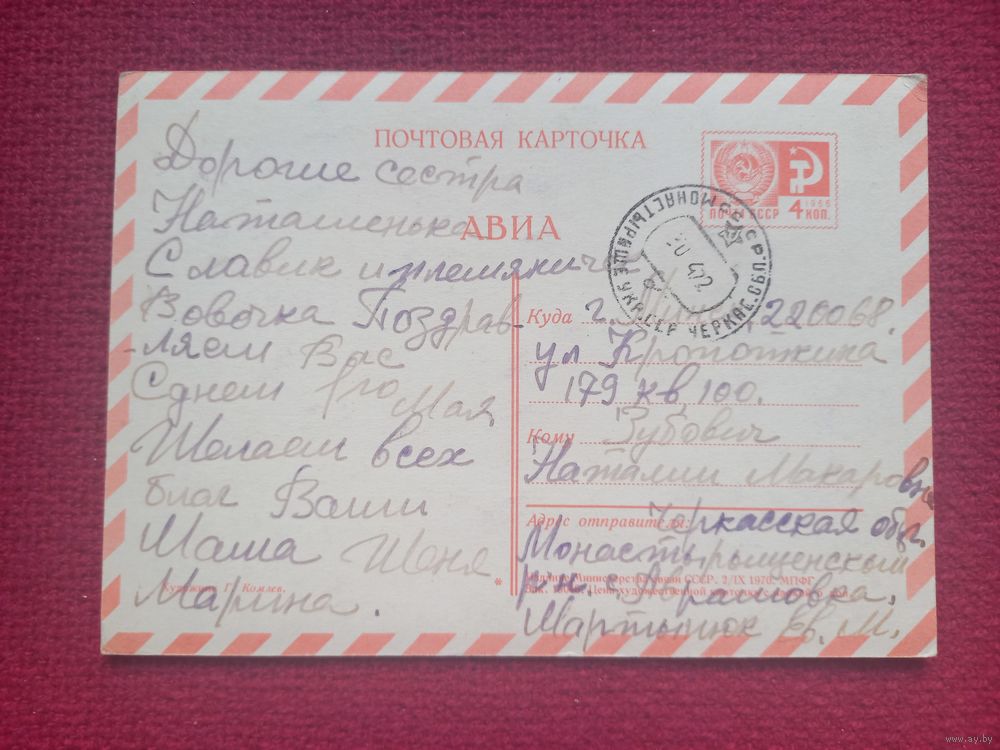 ПОЧТОВАЯ КАРТОЧКА
АВИА
ПОЧТА СССР 4 КОП.
1966
МОНАСТЫРИЩЕ УКР.ССР ЧЕРКАС. ОБЛ.
Дорогие сестра
Наташенька
Славик и племянничек
Вовочка Поздрав-
-ляем Вас
С днем 1го Мая.
Желаем всех
благ Ваши
Маша Женя
Марина.
Художник Г. Комлев.
Куда г. Минск, 220068.
ул Кропоткина
179 кв 100.
Кому Зубович
Наталии Макаровне
Адрес отправителя: Черкасская обл.
Монастырищенский
р-н. с.
Мартынюк Ев. М.
Издание Министерства связи СССР. 2/IX 1970. МПФГ.
Зак. Цена художественной карточки с маркой 6 коп.
www.ay.by